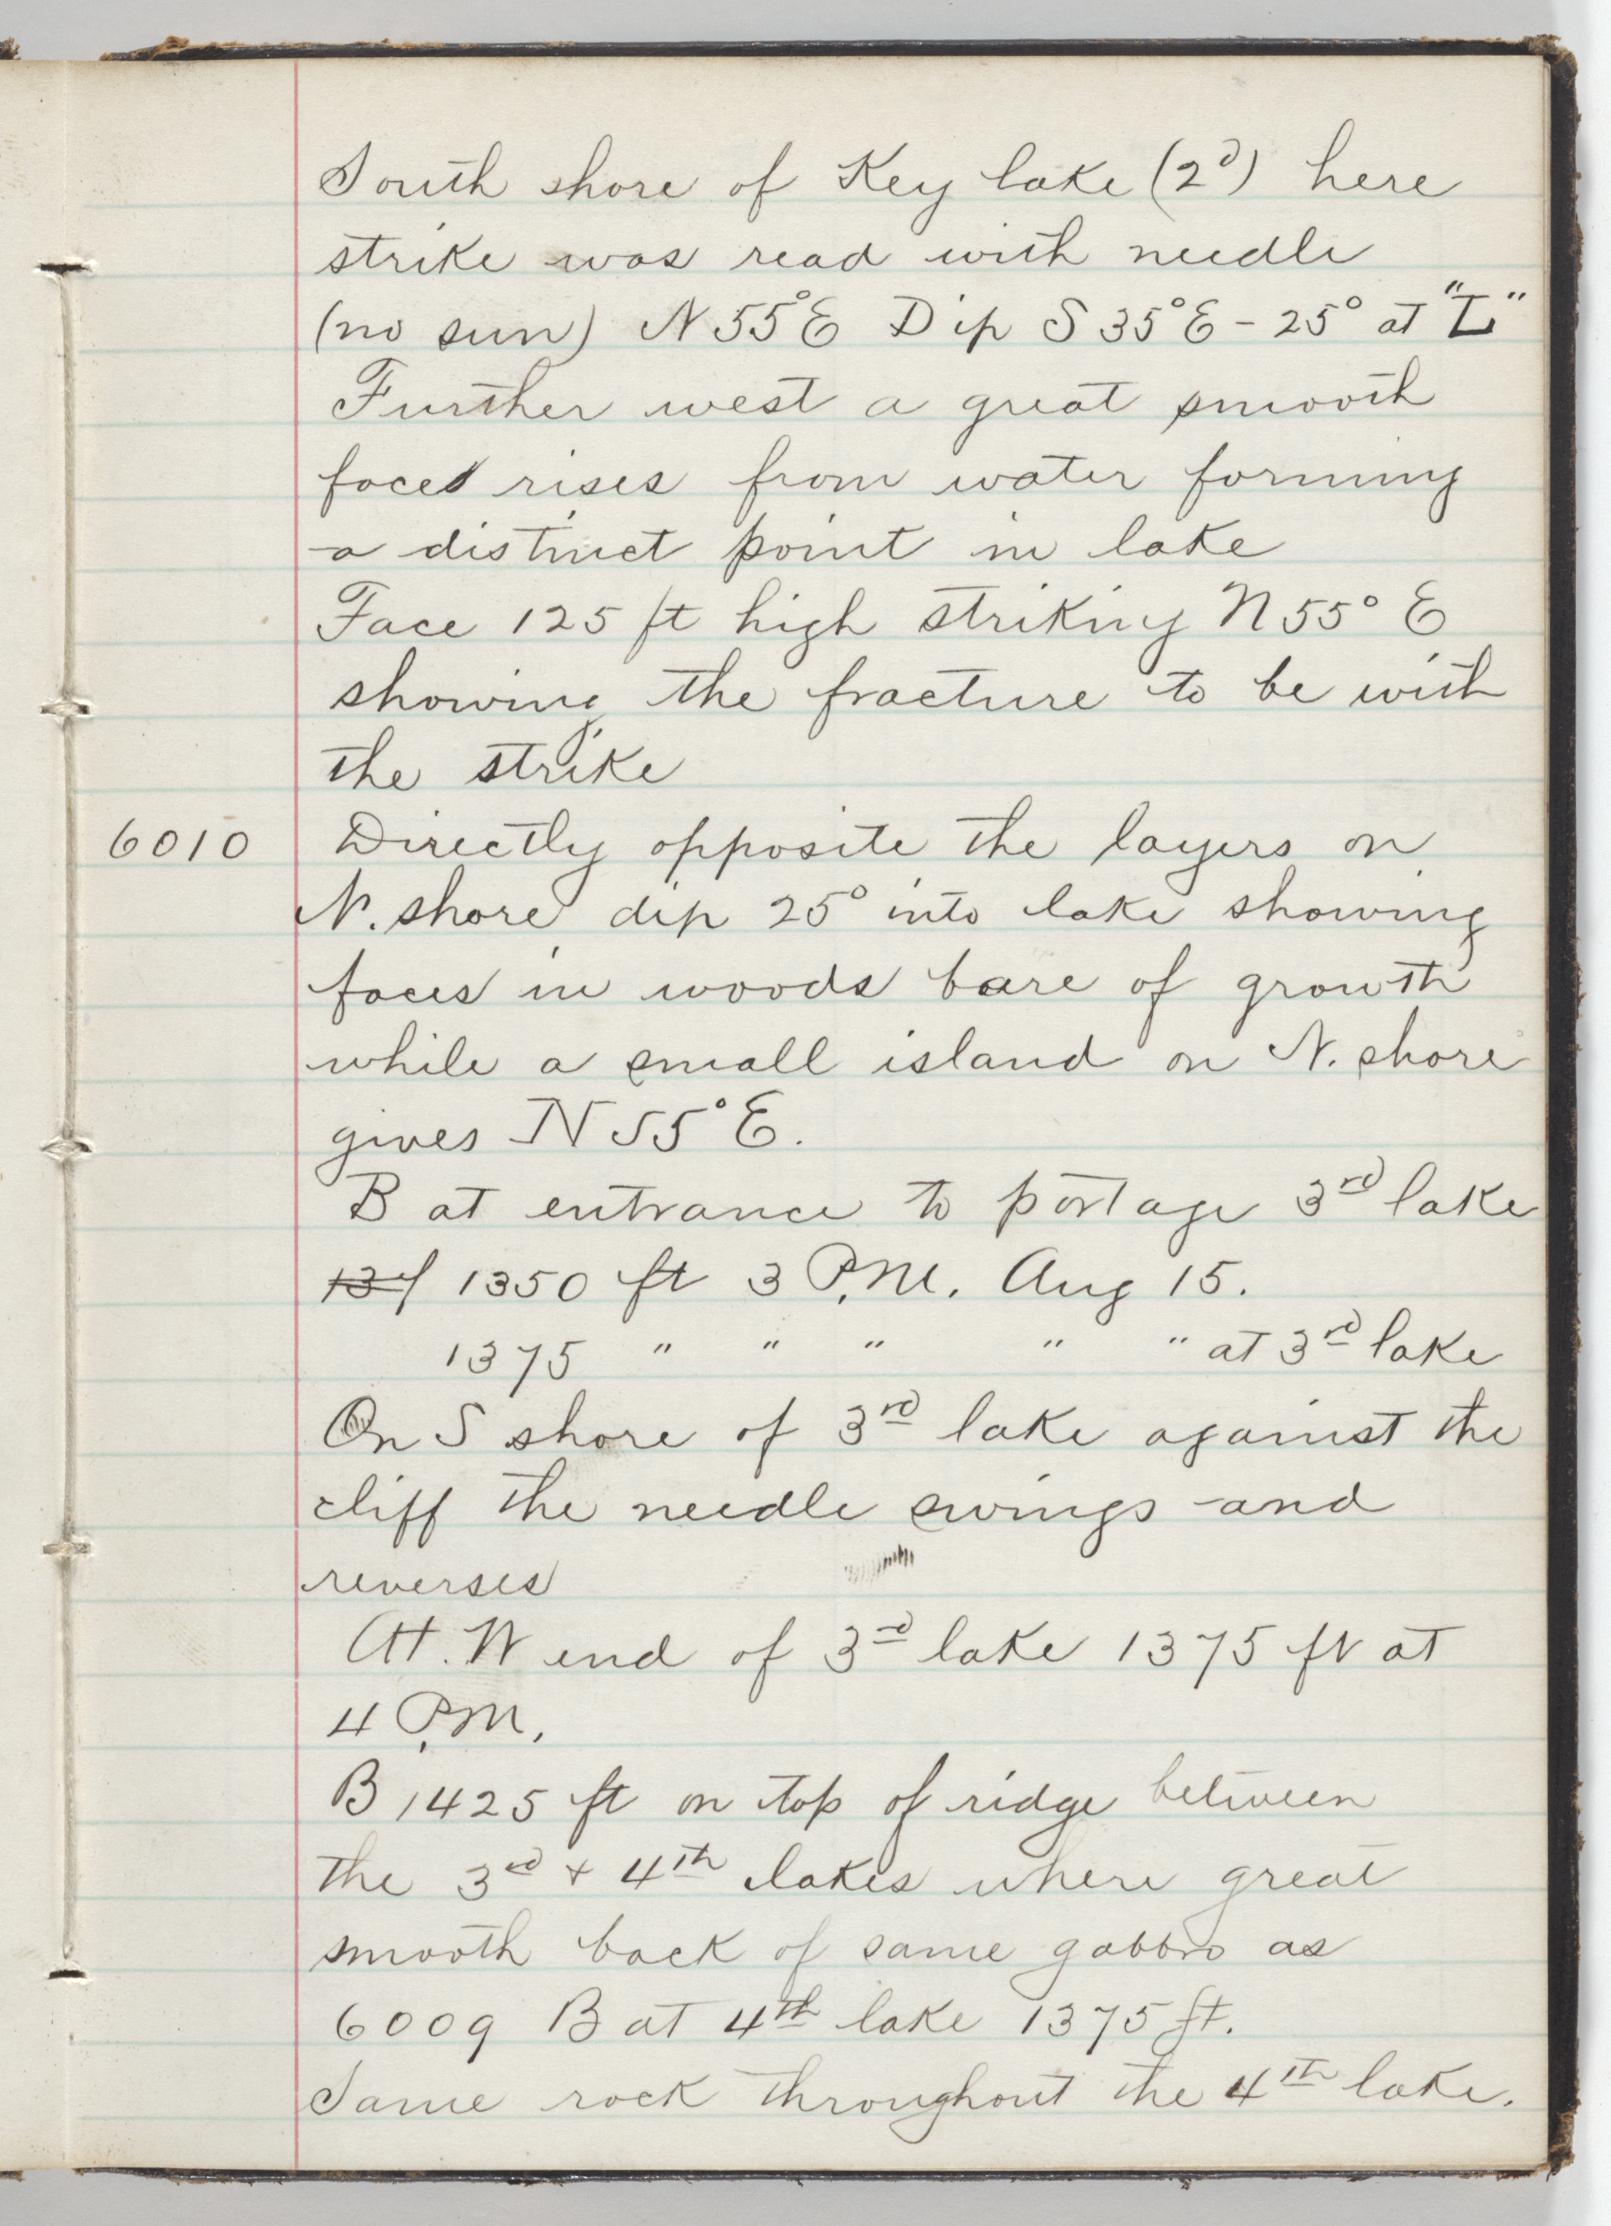 South shore of Key lake (2d) here
strike was read with needle
(no sun) N 55° E Dip S 35° E - 25° at "L"
Further west a great smooth
face rises from water forming
a distinct point in lake
Face 125 ft high striking N 55° E
showing the fracture to be with
the strike
6010 Directly opposite the layers on
N. shore dip 25° into lake showing
faces in woods bare of growth
while a small island on N. shore
gives N 55° E.
B at entrance to portage 3rd lake
1350 ft 3 P.M. Aug 15.
1375 " " " " " at 3rd lake
On S shore of 3rd lake against the
cliff the needle swings and
reverses
At W end of 3rd lake 1375 ft at
4 P.M.
B 1425 ft on top of ridge between
the 3rd + 4th lakes where great
smooth back of same gabbro as
6009 B at 4th lake 1375 ft.
Same rock throughout the 4th lake.